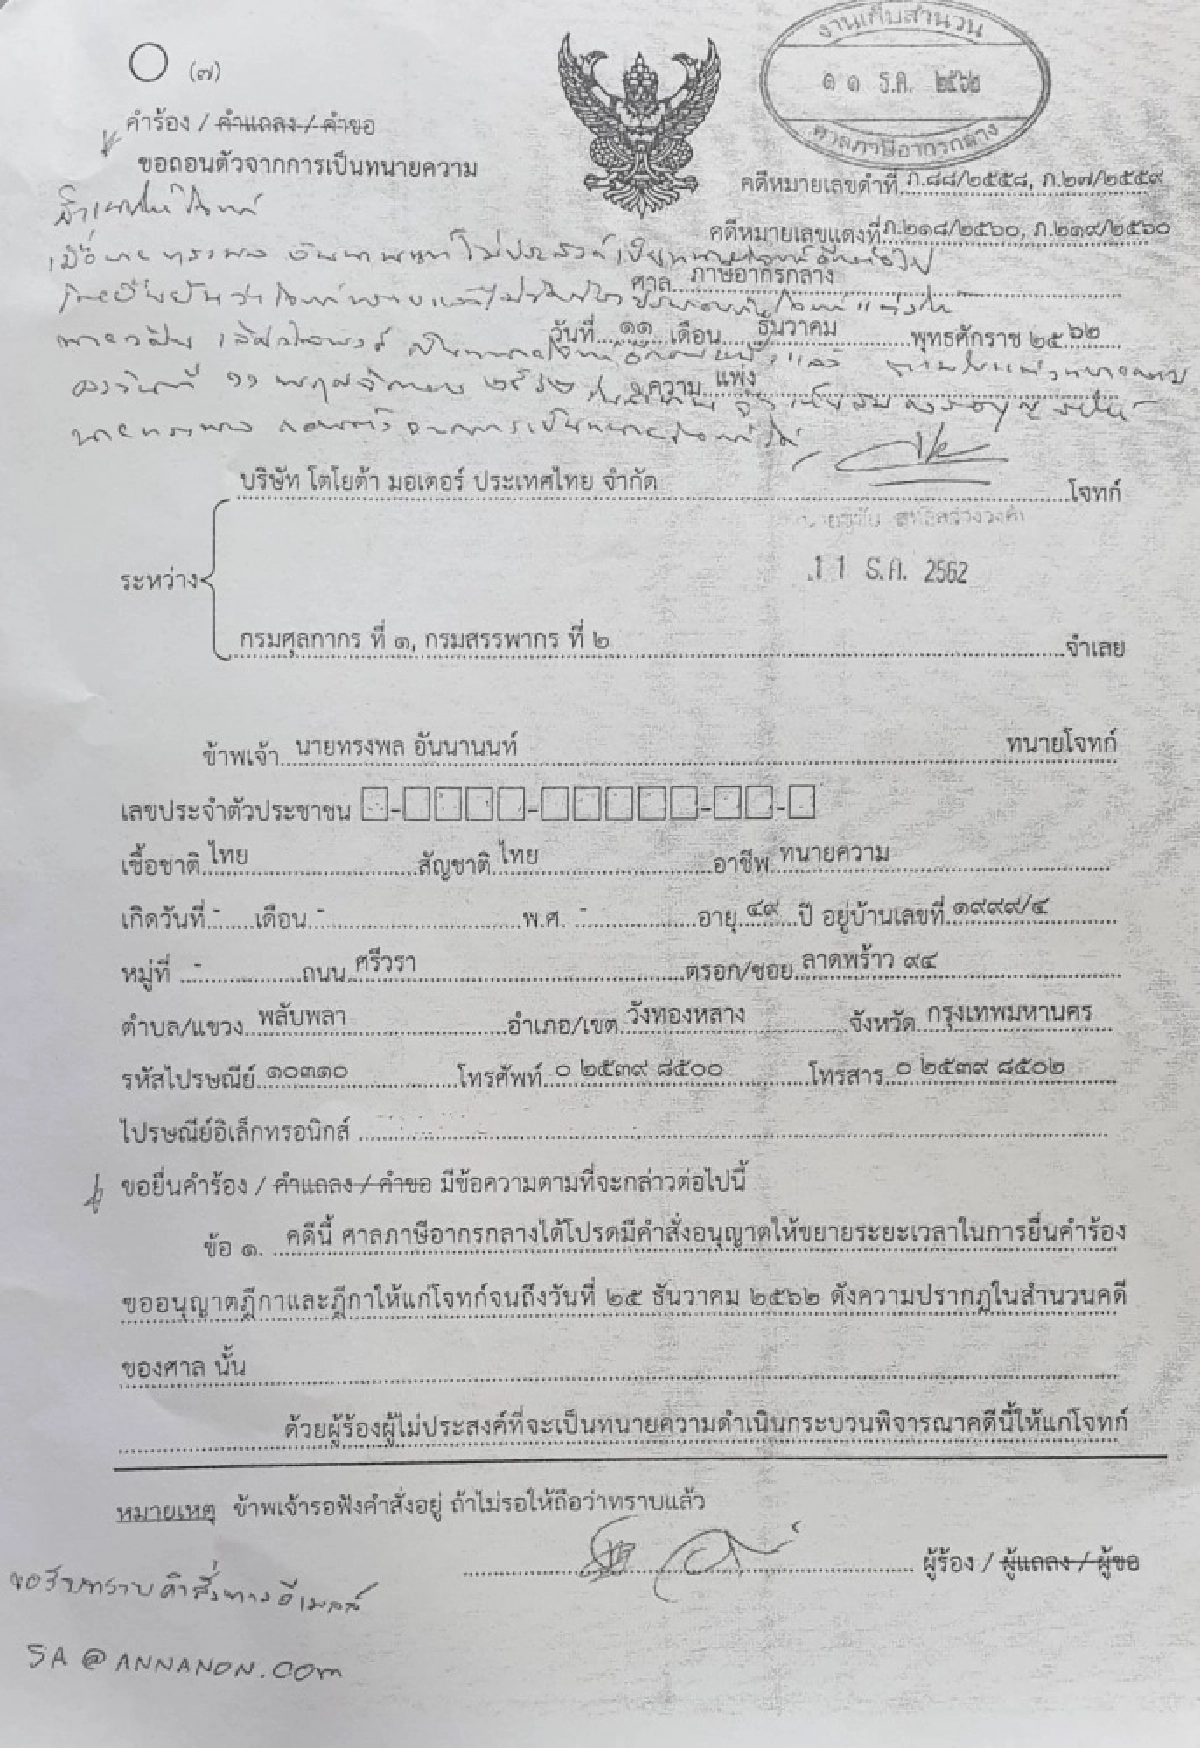 งานเก็บสำนวน
๑๑ ธ.ค. ๒๕๖๒
ศาลภาษีอากรกลาง
(๗)
คำร้อง / คำแถลง / คำขอ
ขอถอนตัวจากการเป็นทนายความ
คดีหมายเลขดำที่ ภ.๘๘/๒๕๕๘, ภ.๒๗/๒๕๕๙
คดีหมายเลขแดงที่ ภ.๒๑๘/๒๕๖๐, ภ.๒๑๙/๒๕๖๐
ศาล ภาษีอากรกลาง
วันที่ ๑๑ เดือน ธันวาคม พุทธศักราช ๒๕๖๒
ความ แพ่ง
บริษัท โตโยต้า มอเตอร์ ประเทศไทย จำกัด โจทก์
11 ธ.ค. 2562
ระหว่าง
กรมศุลกากร ที่ ๑, กรมสรรพากร ที่ ๒ จำเลย
ข้าพเจ้า นายทรงพล อันนานนท์ ทนายโจทก์
เลขประจำตัวประชาชน
เชื้อชาติ ไทย สัญชาติ ไทย อาชีพ ทนายความ
เกิดวันที่ - เดือน - พ.ศ. - อายุ ๔๙ ปี อยู่บ้านเลขที่ ๑๙๙๙/๔
หมู่ที่ - ถนน ศรีวรา ตรอก/ซอย ลาดพร้าว ๙๔
ตำบล/แขวง พลับพลา อำเภอ/เขต วังทองหลาง จังหวัด กรุงเทพมหานคร
รหัสไปรษณีย์ ๑๐๓๑๐ โทรศัพท์ ๐ ๒๕๓๙ ๘๕๐๐ โทรสาร ๐ ๒๕๓๙ ๘๕๐๒
ไปรษณีย์อิเล็กทรอนิกส์
ขอยื่นคำร้อง / คำแถลง / คำขอ มีข้อความตามที่จะกล่าวต่อไปนี้
ข้อ ๑. คดีนี้ ศาลภาษีอากรกลางได้โปรดมีคำสั่งอนุญาตให้ขยายระยะเวลาในการยื่นคำร้อง
ขออนุญาตฎีกาและฎีกาให้แก่โจทก์จนถึงวันที่ ๒๕ ธันวาคม ๒๕๖๒ ดังความปรากฏในสำนวนคดี
ของศาล นั้น
ด้วยผู้ร้องผู้ไม่ประสงค์ที่จะเป็นทนายความดำเนินกระบวนพิจารณาคดีนี้ให้แก่โจทก์
หมายเหตุ ข้าพเจ้ารอฟังคำสั่งอยู่ ถ้าไม่รอให้ถือว่าทราบแล้ว
ผู้ร้อง / ผู้แถลง / ผู้ขอ
ขอรับทราบคำสั่งทางอีเมลล์
SA@ANNANON.COM